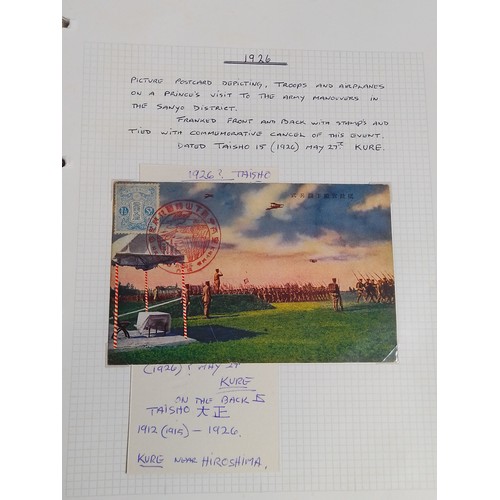 1926
PICTURE POSTCARD DEPICTING, TROOPS AND AIRPLANES
ON A PRINCE'S VISIT TO THE ARMY MANOEUVERS IN
THE SANYO DISTRICT.
FRANKED FRONT AND BACK WITH STAMPS AND
TIED WITH COMMEMORATIVE CANCEL OF THIS EVENT.
DATED TAISHO 15 (1926) MAY 27th KURE.
1926? TAISHO
(1926)? MAY 27
KURE
ON THE BACK
TAISHO 大正
1912 (1915) - 1926.
KURE NEAR HIROSHIMA.